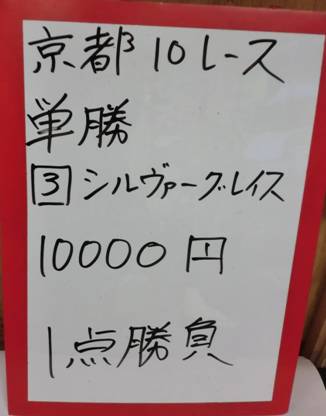 京都10レース
単勝
3 シルヴァーグレイス
10000円
1点勝負